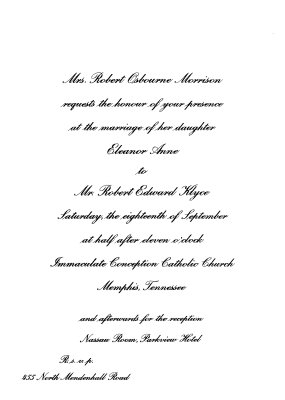 Mrs. Robert Osbourne Morrison
requests the honour of your presence
at the marriage of her daughter
Eleanor Anne
to
Mr. Robert Edward Klyce
Saturday, the eighteenth of September
at half after eleven o'clock
Immaculate Conception Catholic Church
Memphis, Tennessee
and afterwards for the reception
Nassau Room, Parkview Hotel
R.s.v.p.
455 North Mendenhall Road